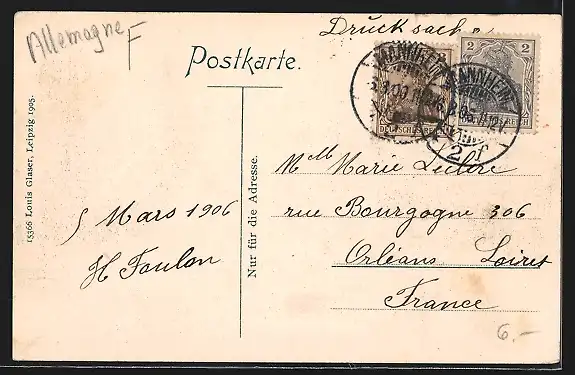 Allemagne F
Drucksache
Postkarte.
MANNHEIM
MANNHEIM
2 f
3
2 2
DEUTSCHES REICH
REICH
15366 Louis Glaser, Leipzig 1905.
Nur für die Adresse.
5 Mars 1906
H Foulon
Mlle Marie Leclere
rue Bourgogne 306
Orléans Loiret
France
6.-